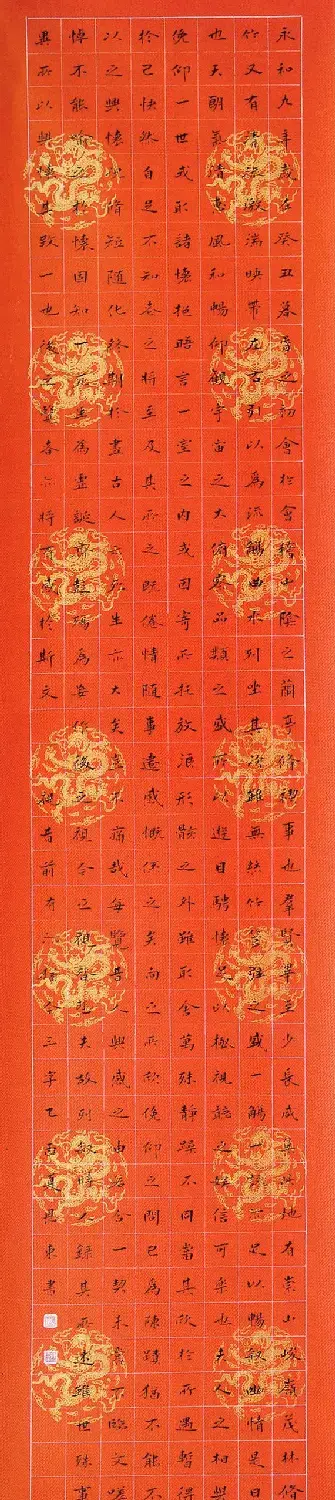 永和九年歲在癸丑暮春之初會於會稽山陰之蘭亭修禊事也羣賢畢至少長咸集此地有崇山峻嶺茂林脩
竹又有清流激湍映帶左右引以爲流觴曲水列坐其次雖無絲竹管弦之盛一觴一詠亦足以暢敘幽情是日
也天朗氣清惠風和暢仰觀宇宙之大俯察品類之盛所以遊目騁懷足以極視聽之娛信可樂也夫人之相與
俛仰一世或取諸懷抱晤言一室之內或因寄所托放浪形骸之外雖取舍萬殊靜躁不同當其欣於所遇暫得
於己快然自足不知老之將至及其所之既倦情隨事遷感慨係之矣向之所欣俛仰之間已為陳蹟猶不能不
以之興懷況脩短隨化終期於盡古人云死生亦大矣豈不痛哉每覽昔人興感之由若合一契未嘗不臨文嗟
悼不能喻之於懷固知一死生為虛誕齊彭殤為妄作後之視今之視昔悲夫故列敘時人錄其所述雖世殊事
異所以興懷其致一也後之覽者亦將有感於斯文 視昔前有亦今三字乙酉夏東書